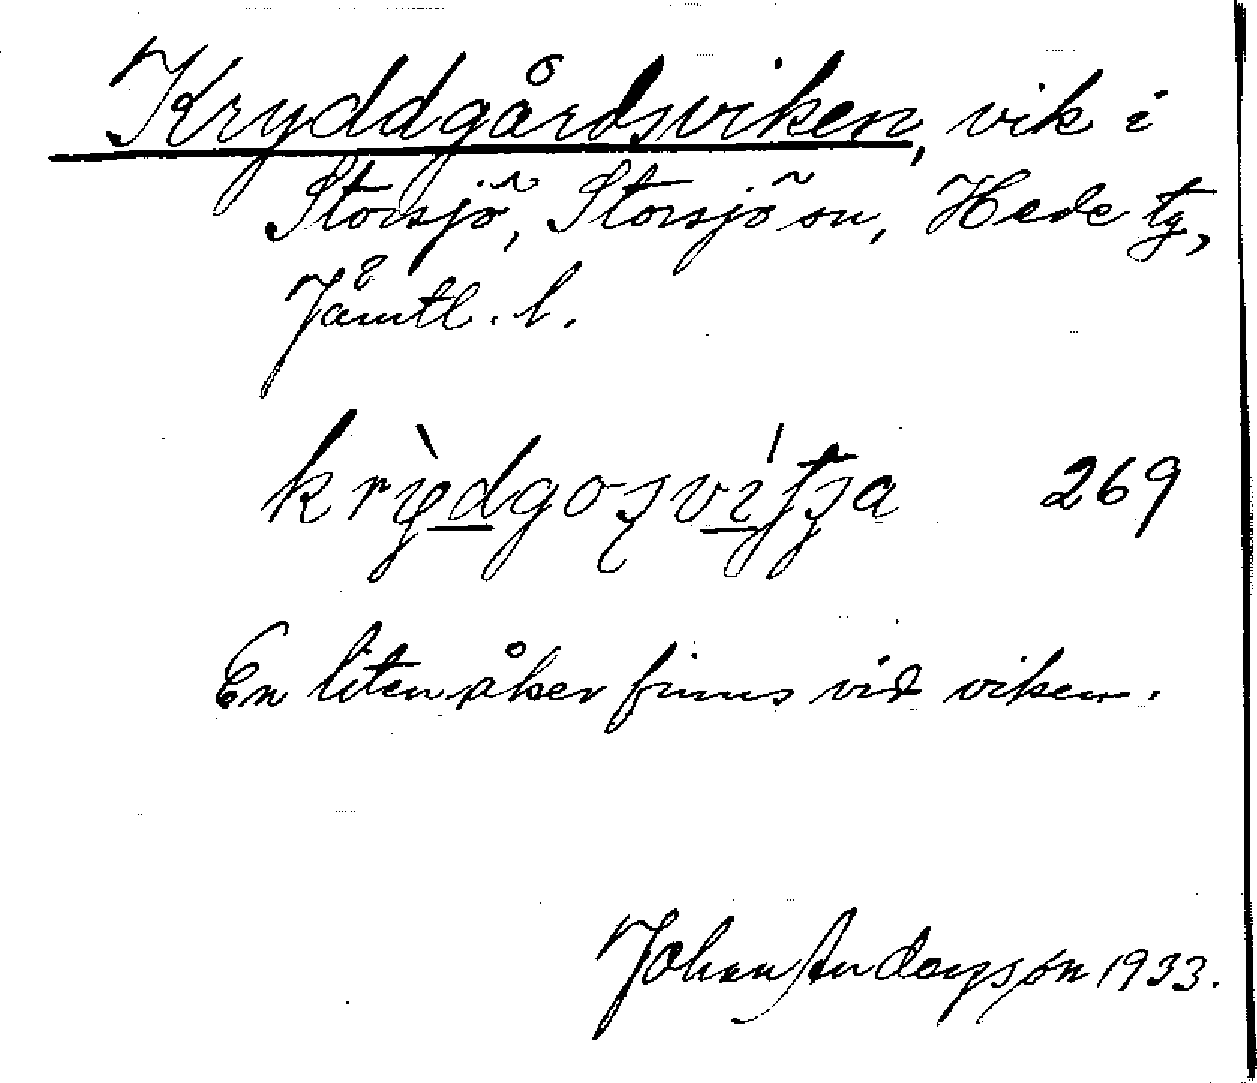 Kryddgårdsviken, vik i
Storsjö, Storsjö sn, Hede tg,
Jämtl. l.
krỳdgosvítja 269
En liten åker finns vid viken.
Johan Andersson 1933.